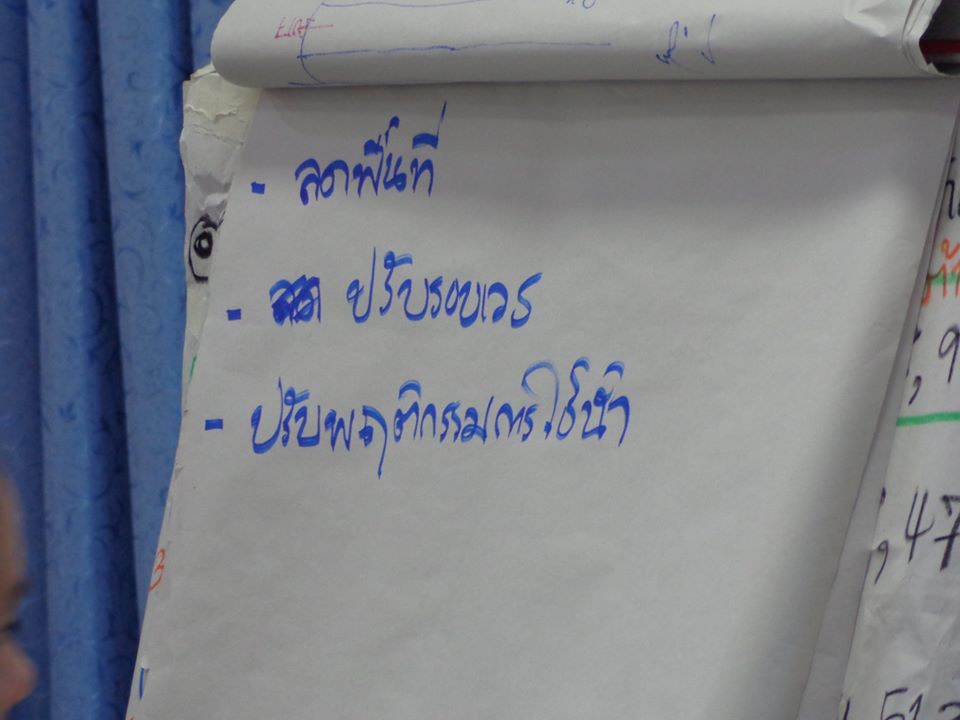 - ลดพื้นที่
- ปรับรอบเวร
- ปรับพฤติกรรมการใช้น้ำ
, 9
, 47